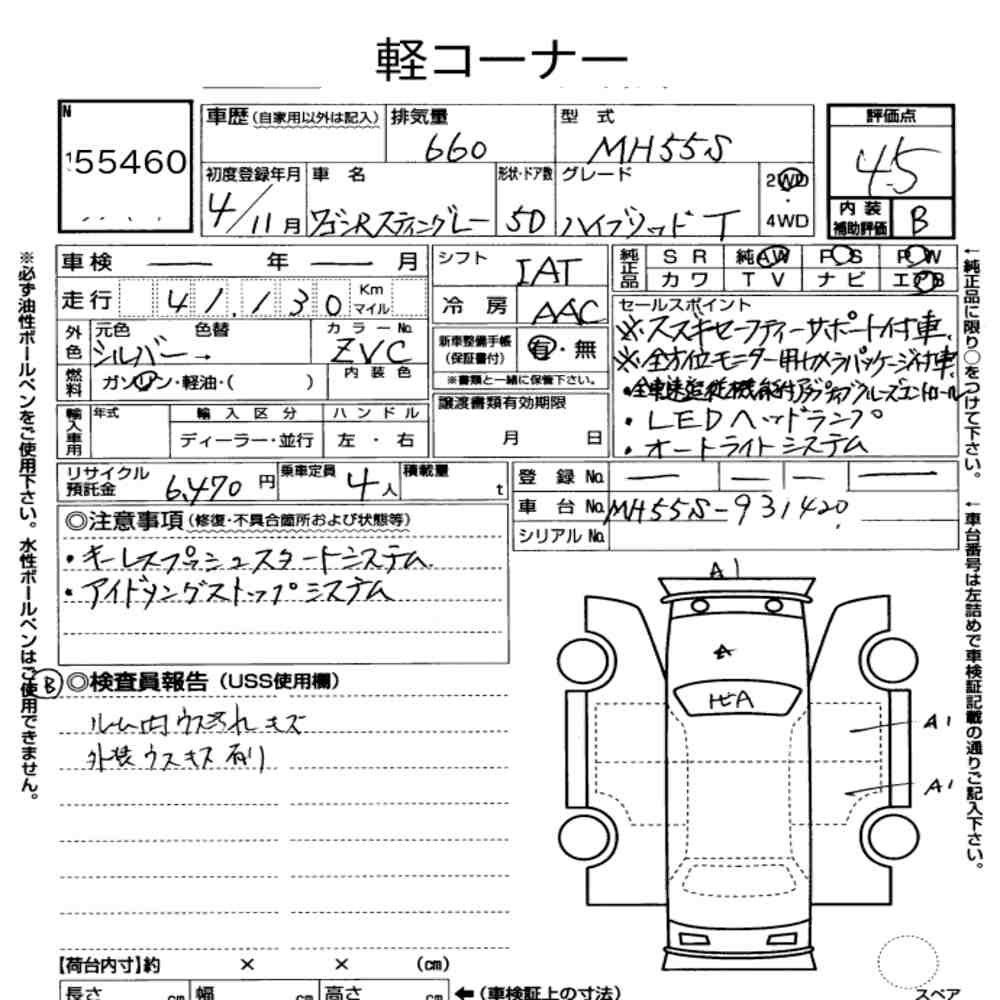 軽コーナー
N
155460
車歴 (自家用以外は記入) 排気量 660 型式 MH55S
評価点 4.5
初度登録年月 4/11月 車名 ワゴンRスティングレー 形状・ドア数 5D グレード ハイブリッド T 2WD ・ 4WD
内装補助評価 B
車検 — 年 — 月
シフト IAT
純正品 SR 純AW PS PW
カワ TV ナビ エアB
走行 41,130 Km マイル
冷房 AAC
セールスポイント
※スズキセーフティーサポート付車
※全方位モニター用カメラパッケージ付車
・全車速追従機能付アダプティブクルーズコントロール
・LEDヘッドランプ
・オートライトシステム
外色 元色 シルバー → 色替 カラーNo. ZVC
新車整備手帳 (保証書付) 有・無
※書類と一緒に保管下さい。
燃料 ガソリン・軽油・( ) 内装色
譲渡書類有効期限
月 日
輸入車用 年式 輸入区分 ハンドル
ディーラー・並行 左・右
リサイクル預託金 6,470円 乗車定員 4人 積載量 t
登録No. — — — —
車台No. MH55S-931420
シリアルNo.
◎注意事項 (修復・不具合箇所および状態等)
・キーレスプッシュスタートシステム
・アイドリングストップシステム
B ◎検査員報告 (USS使用欄)
ルーム内ウス汚れキズ
外装ウスキズ有り
A1
A
ヒビA
A1
A1
【荷台内寸】約 × × (cm)
長さ cm 幅 cm 高さ cm ←(車検証上の寸法)
スペア
※必ず油性ボールペンをご使用下さい。水性ボールペンはご使用できません。
←純正品に限り○をつけて下さい。
←車台番号は左詰めで車検証記載の通りご記入下さい。